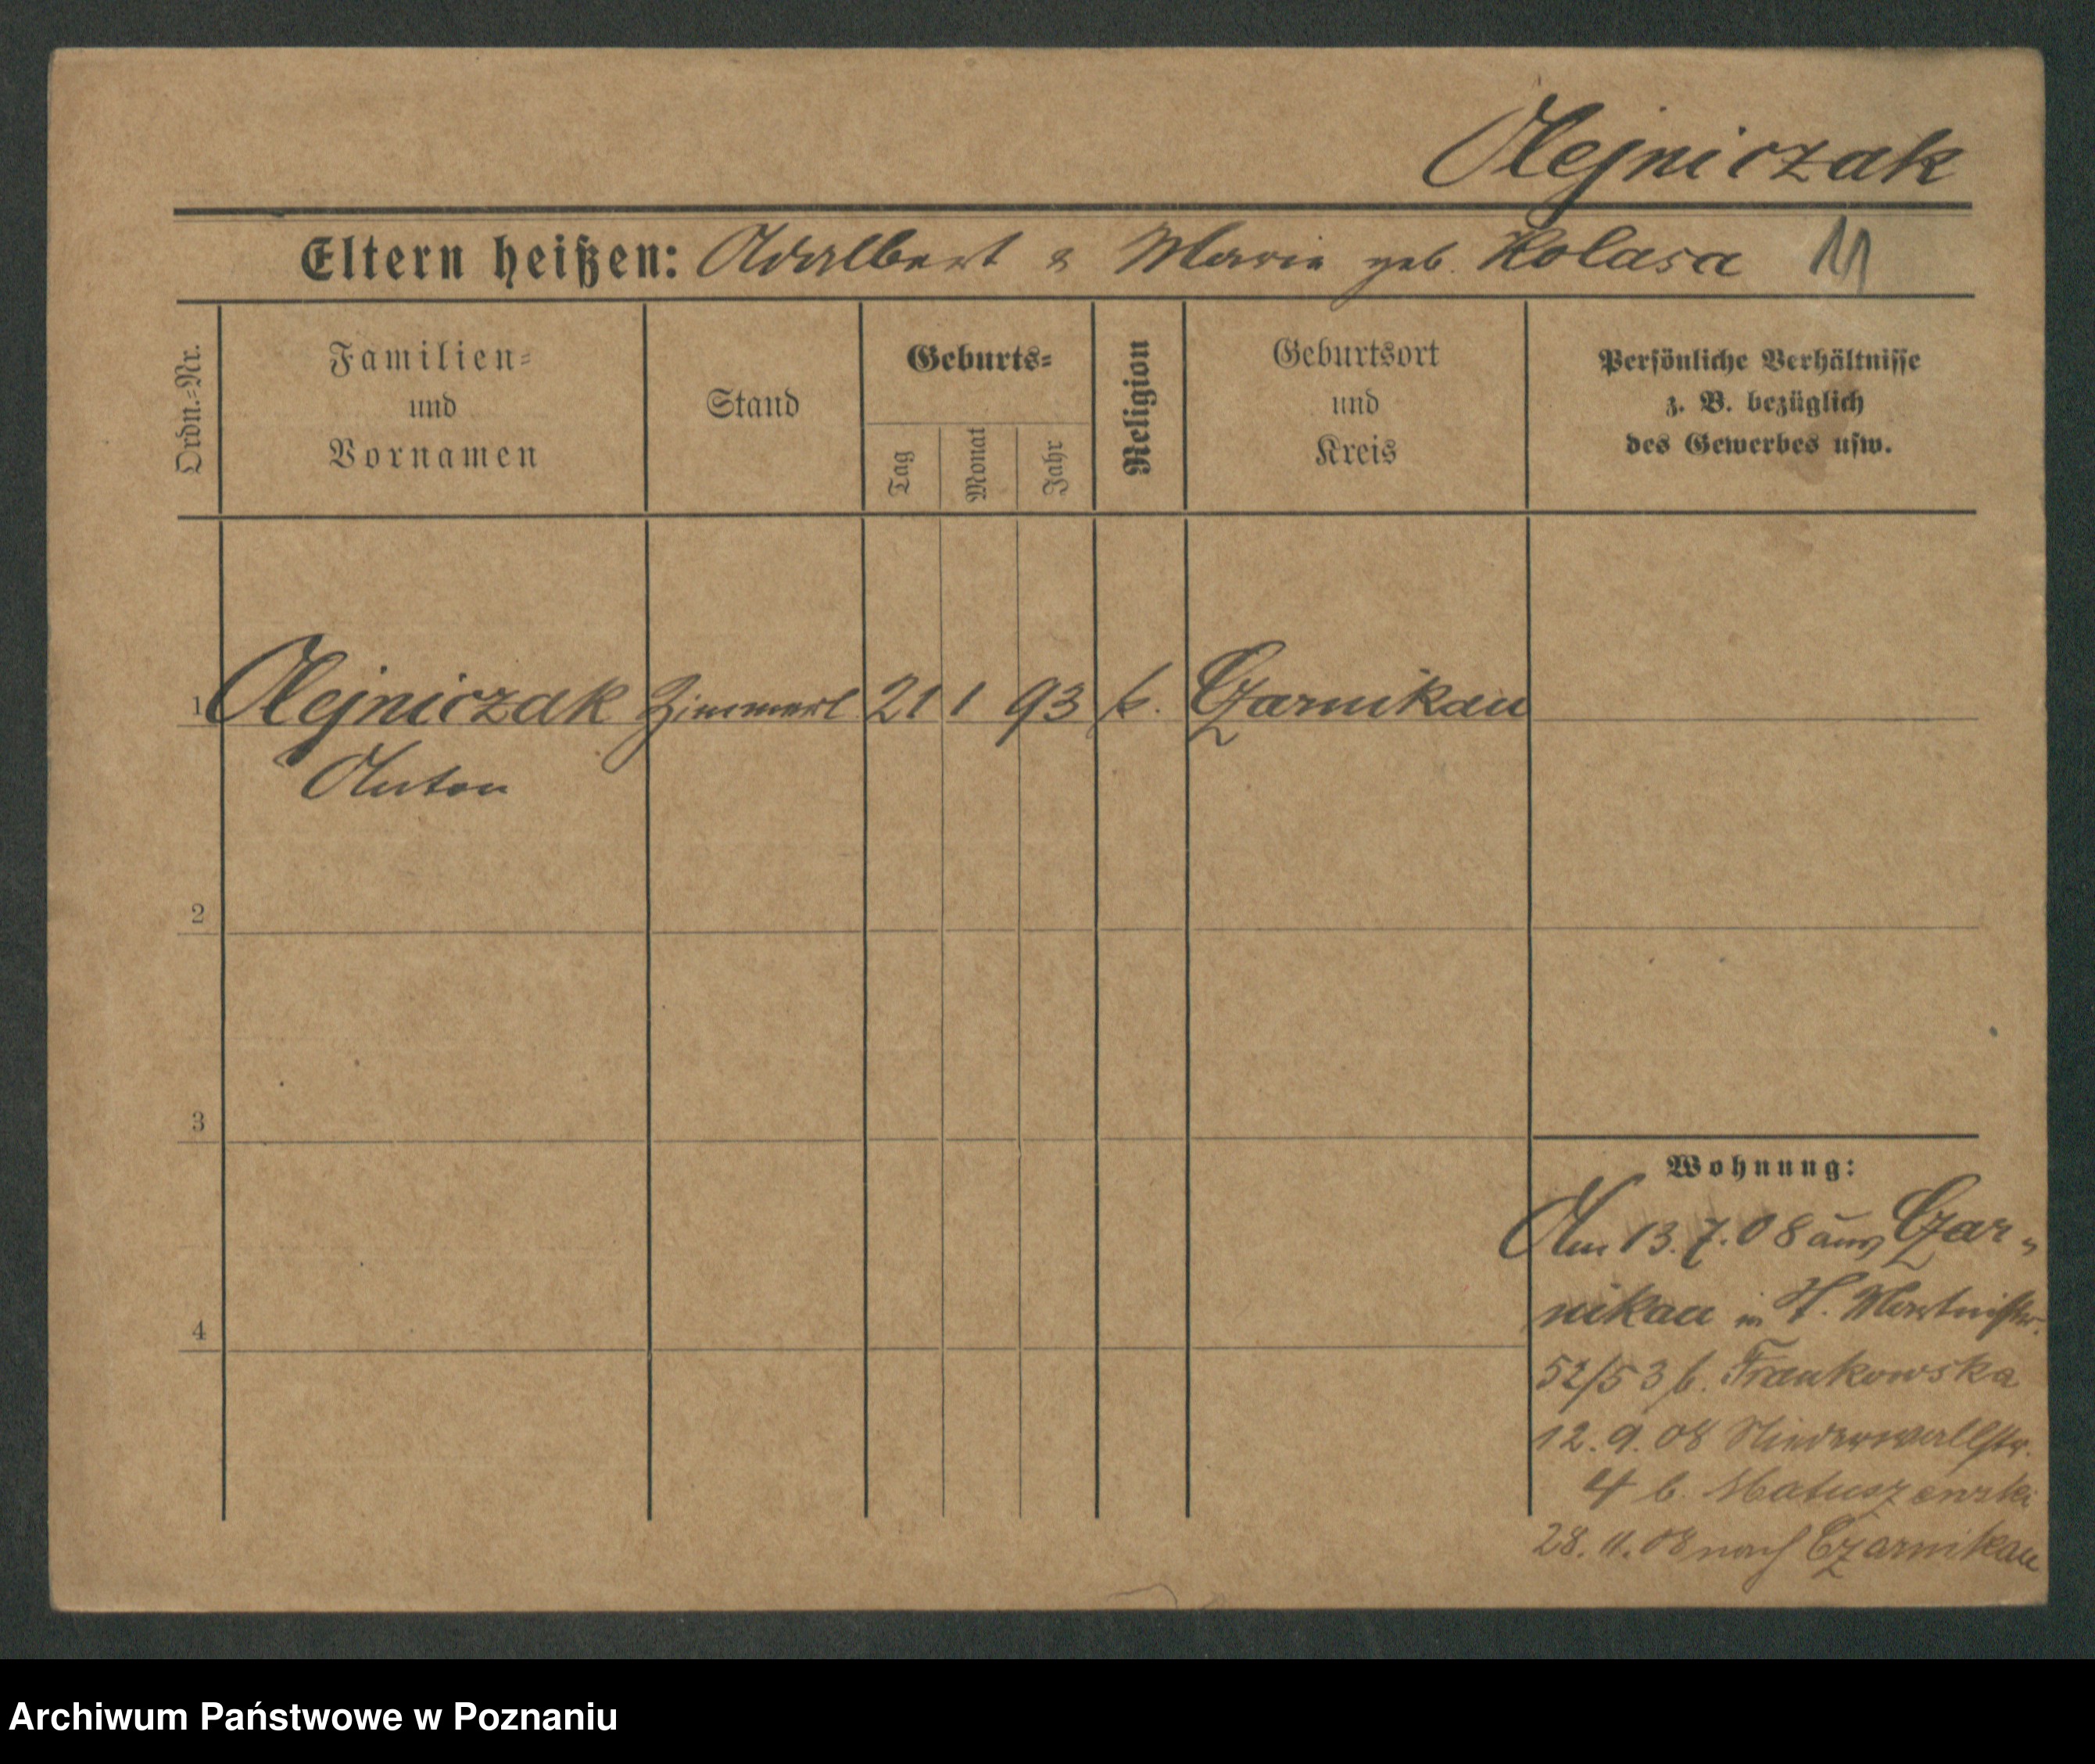 Olejniczak
Eltern heißen: Adalbert & Marie geb. Kolasa
Ordn.=Nr.
Familien=
und
Vornamen
Stand
Geburts=
Tag
Monat
Jahr
Religion
Geburtsort
und
Kreis
Persönliche Verhältnisse
z. B. bezüglich
des Gewerbes usw.
1 Olejniczak Zimmerl 21 1 93 k. Czarnikau
Anton
2
3
4
Wohnung:
Am 13.7.08 aus Czar=
nikau in St. Martinstr.
52/53 b. Frankowska
12.9.08 Niederwallstr.
4 b. Matuszewski
28.11.08 nach Czarnikau
Archiwum Państwowe w Poznaniu